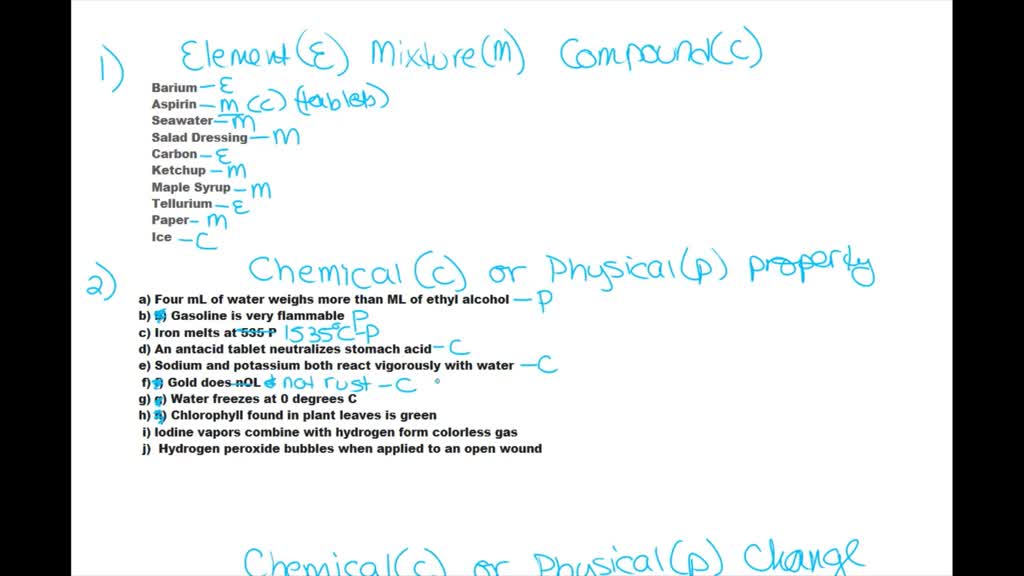 1) Element(E) Mixture(M) Compound(C)
Barium - E
Aspirin - M (C) (tablets)
Seawater - M
Salad Dressing - M
Carbon - E
Ketchup - M
Maple Syrup - M
Tellurium - E
Paper - M
Ice - C
2) Chemical (C) or Physical (P) property
a) Four mL of water weighs more than ML of ethyl alcohol - P
b) Gasoline is very flammable P
c) Iron melts at 535 P 1535°C - P
d) An antacid tablet neutralizes stomach acid - C
e) Sodium and potassium both react vigorously with water - C
f) Gold does nOL not rust - C
g) Water freezes at 0 degrees C
h) Chlorophyll found in plant leaves is green
i) Iodine vapors combine with hydrogen form colorless gas
j) Hydrogen peroxide bubbles when applied to an open wound
Chemical (C) or Physical (P) Change